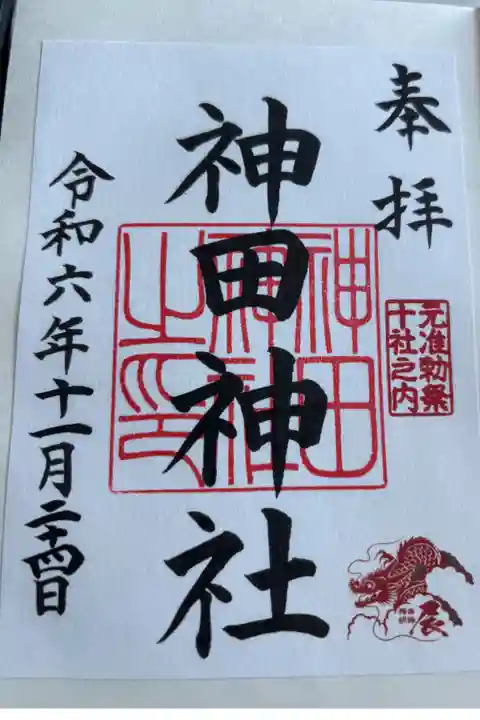 奉拝
元准勅祭
十社之内
辰
神田神社
神田
神社
之印
令和六年十一月二十四日